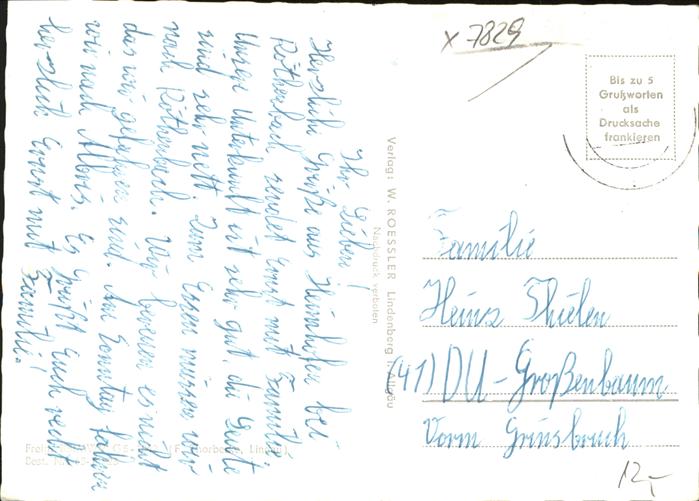 Ihr Lieben!
Herzliche Grüße aus Heimhofen bei
Röthenbach sendet Ernst mit Familie.
Unsere Unterkunft ist sehr gut, die Leute
sind sehr nett. Zum Essen müssen wir
nach Röthenbach. Wir bereuen es nicht
das wir gefahren sind. Am Sonntag fahren
wir nach Albris. Es grüßt Euch recht
herzlich Ernst mit
Familie!
Verlag: W. ROESSLER Lindenberg i. Allgäu
Nachdruck verboten
x 7829
Bis zu 5
Grußworten
als
Drucksache
frankieren
Familie
Heinz Thielen
(41) DU-Großenbaum
Vorm Grinsbruch
12,-